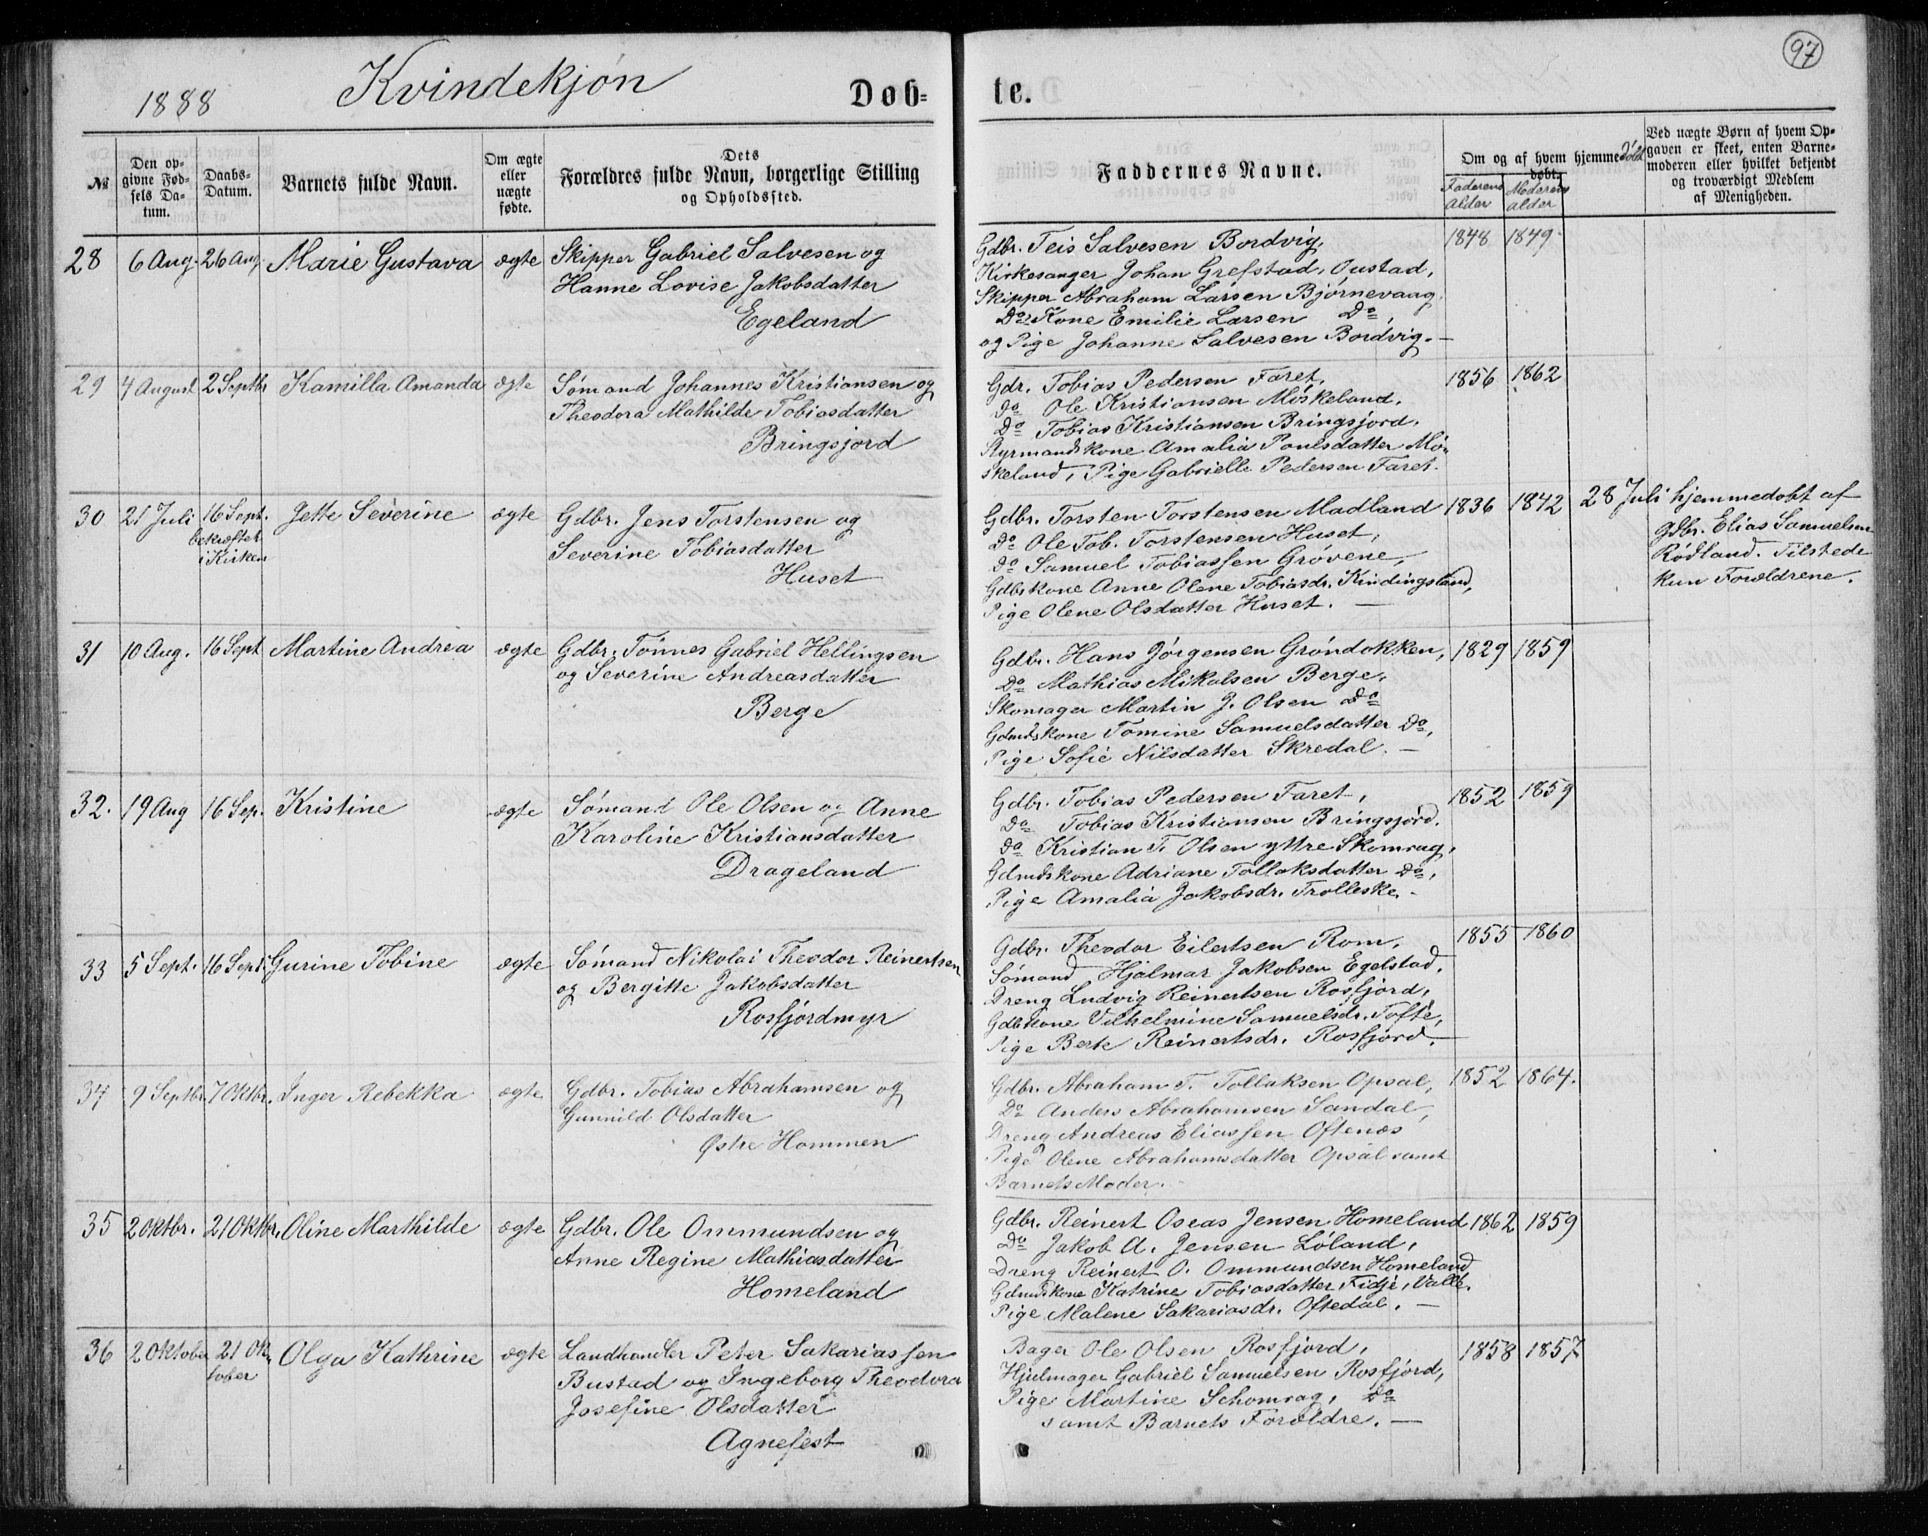 97
1888 Kvindekjøn Døb=
te.
№
Den op-
givne Fød-
sels Da-
tum.
Daabs-
Datum.
Barnets fulde Navn.
Om ægte
eller
uægte
fødte.
Dets
Forældres fulde Navn, borgerlige Stilling
og Opholdssted.
Faddernes Navne.
Om og af hvem hjemmedøbt
døbt.
Faderens
alder
Moderens
alder
Ved uægte Børn af hvem Op-
gaven er skeet, enten Barne-
moderen eller hvilket bekjendt
og troværdigt Medlem
af Menigheden.
28 6 Aug. 26 Aug. Marie Gustava ægte
Skipper Gabriel Salvesen og
Hanne Lovise Jakobsdatter
Egeland
Gdbr. Teis Salvesen Bordvig,
Kirkesanger Johan Grefstad, Oustad,
Skipper Abraham Larsen Bjørnevaag,
Do Kone Emilie Larsen Do,
og Pige Johanne Salvesen Bordvig. —
1848 1849
29 4 August 2 Septbr Kamilla Amanda ægte
Sømand Johannes Kristiansen og
Theodora Mathilde Tobiasdatter
Bringsjord
Gdr. Tobias Pedersen Faret,
do Ole Kristiansen Møskeland.
Do Tobias Kristiansen Bringsjord.
Styrmandskone Amalia Poulsdatter Mø-
skeland, Pige Gabrielle Pedersen Faret.
1856 1862
30 21 Juli 16 Sept.
bekræftet
i Kirken
Jette Severine ægte
Gdbr. Jens Torstensen og
Severine Tobiasdatter
Huset
Gdbr. Torsten Torstensen Madland
Do Ole Tob. Torstensen Huset,
do Samuel Tobiassen Grøvene,
Gdbrkone Anne Olene Tobiasdr. Kindingsland,
Pige Olene Olsdatter Huset. —
1836 1842
28 Juli hjemmedøbt af
Gdbr. Elias Samuelsen
Rødland. Tilstede
kun Forældrene.
31 10 Aug. 16 Sept Martine Andrea ægte
Gdbr. Tønnes Gabriel Hellingsen
og Severine Andreasdatter
Berge
Gdbr. Hans Jørgensen Grøndokken,
Do Mathias Mikalsen Berge,
Skomager Martin J. Olsen do
Gdmdskone Tomine Samuelsdatter Do,
Pige Sofie Nilsdatter Skredal. —
1829 1859
32. 19 Aug 16 Sep. Kristine ægte
Sømand Ole Olsen og Anne
Karoline Kristiansdatter
Drageland
Gdbr. Tobias Pedersen Faret,
Do Tobias Kristiansen Bringsjord.
do Kristian T. Olsen yttre Skomrag,
Gdmdskone Adriane Tollaksdatter Do,
Pige Amalia Jakobsdr. Trolleske. -
1852 1859
33 5 Sept. 16 Sept. Gurine Tobine ægte
Sømand Nikolai Theodor Reinertsen
og Bergitte Jakobsdatter
Rosfjordmyr
Gdbr. Theodor Eilertsen Rom,
Sømand Hjalmar Jakobsen Egelstad,
Dreng Ludvig Reinertsen Rosfjord,
Gdbkone Vilhelmine Samuelsdr. Tofte,
Pige Berte Reinertsdr. Rosfjord.
1855 1860
34 9 Septbr. 7 Oktbr. Inger Rebekka ægte
Gdbr. Tobias Abrahamsen og
Gunnild Olsdatter
Østre Hommen
Gdbr. Abraham T. Tollaksen Opsal,
Do Anders Abrahamsen Sandal,
Dreng Andreas Eliassen Oftenæs
Pige Olene Abrahamsdatter Opsal samt
Barnets Moder. -
1852 1864.
35 2 Oktbr. 21 Oktbr. Oline Marthilde ægte
Gdbr. Ole Ommundsen og
Anne Regine Mathiasdatter
Homeland
Gdbr. Reinert Oseas Jensen Homeland
Do Jakob A. Jensen Løland,
Dreng Reinert O. Ommundsen Homeland
Gdmdskone Katrine Tobiasdatter Fidje, Valle.
Pige Malene Sakariasdr. Oftedal. —
1862 1859
36 2 Oktober 21 Ok
tober
Olga Kathrine ægte
Landhandler Peter Sakariassen
Bustad og Ingeborg Theodora
Josefine Olsdatter
Agnefest
Bager Ole Olsen Rosfjord,
Hjulmager Gabriel Samuelsen Rosfjord,
Pige Martine Schomrag, Do
samt Barnets Forældre. —
1858 1857